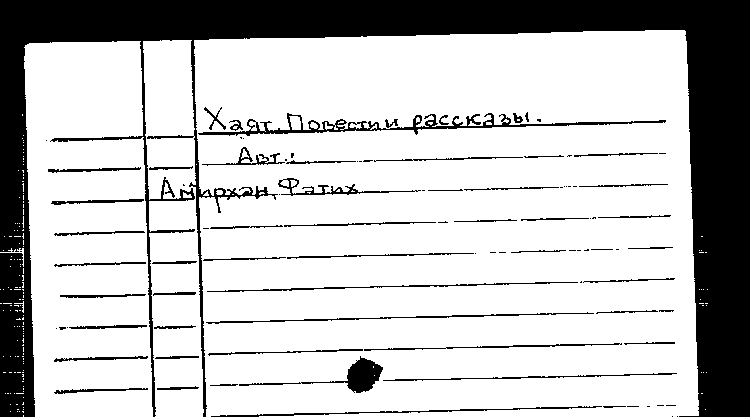 Хаят. Повести и рассказы.
Авт.:
Амирхан, Фатих